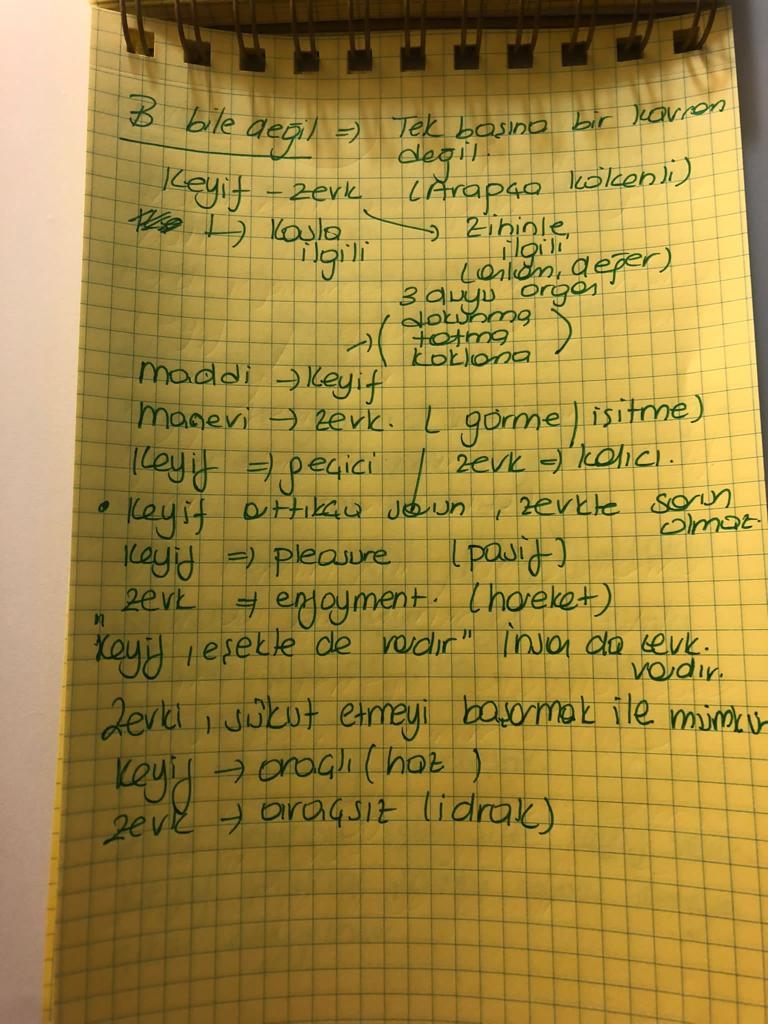 B bile değil => Tek başına bir kavram
değil.
Keyif - zevk (Arapça kökenli)
↳ Kasla ilgili → Zihinle, ilgili
(anlam, değer)
3 duyu organ
→ ( dokunma
tatma
koklama )
maddi → Keyif
manevi → zevk. ( görme / işitme)
Keyif => geçici / zevk => kalıcı.
• Keyif arttıkça sorun, zevkte sorun
olmaz.
Keyif => pleasure (pasif)
zevk => enjoyment. (hareket)
"Keyif, eşekte de vardır" insan da zevk.
vardır.
Zevki, sükut etmeyi başarmak ile mümkün
Keyif → araçlı (haz )
zevk → araçsız (idrak)